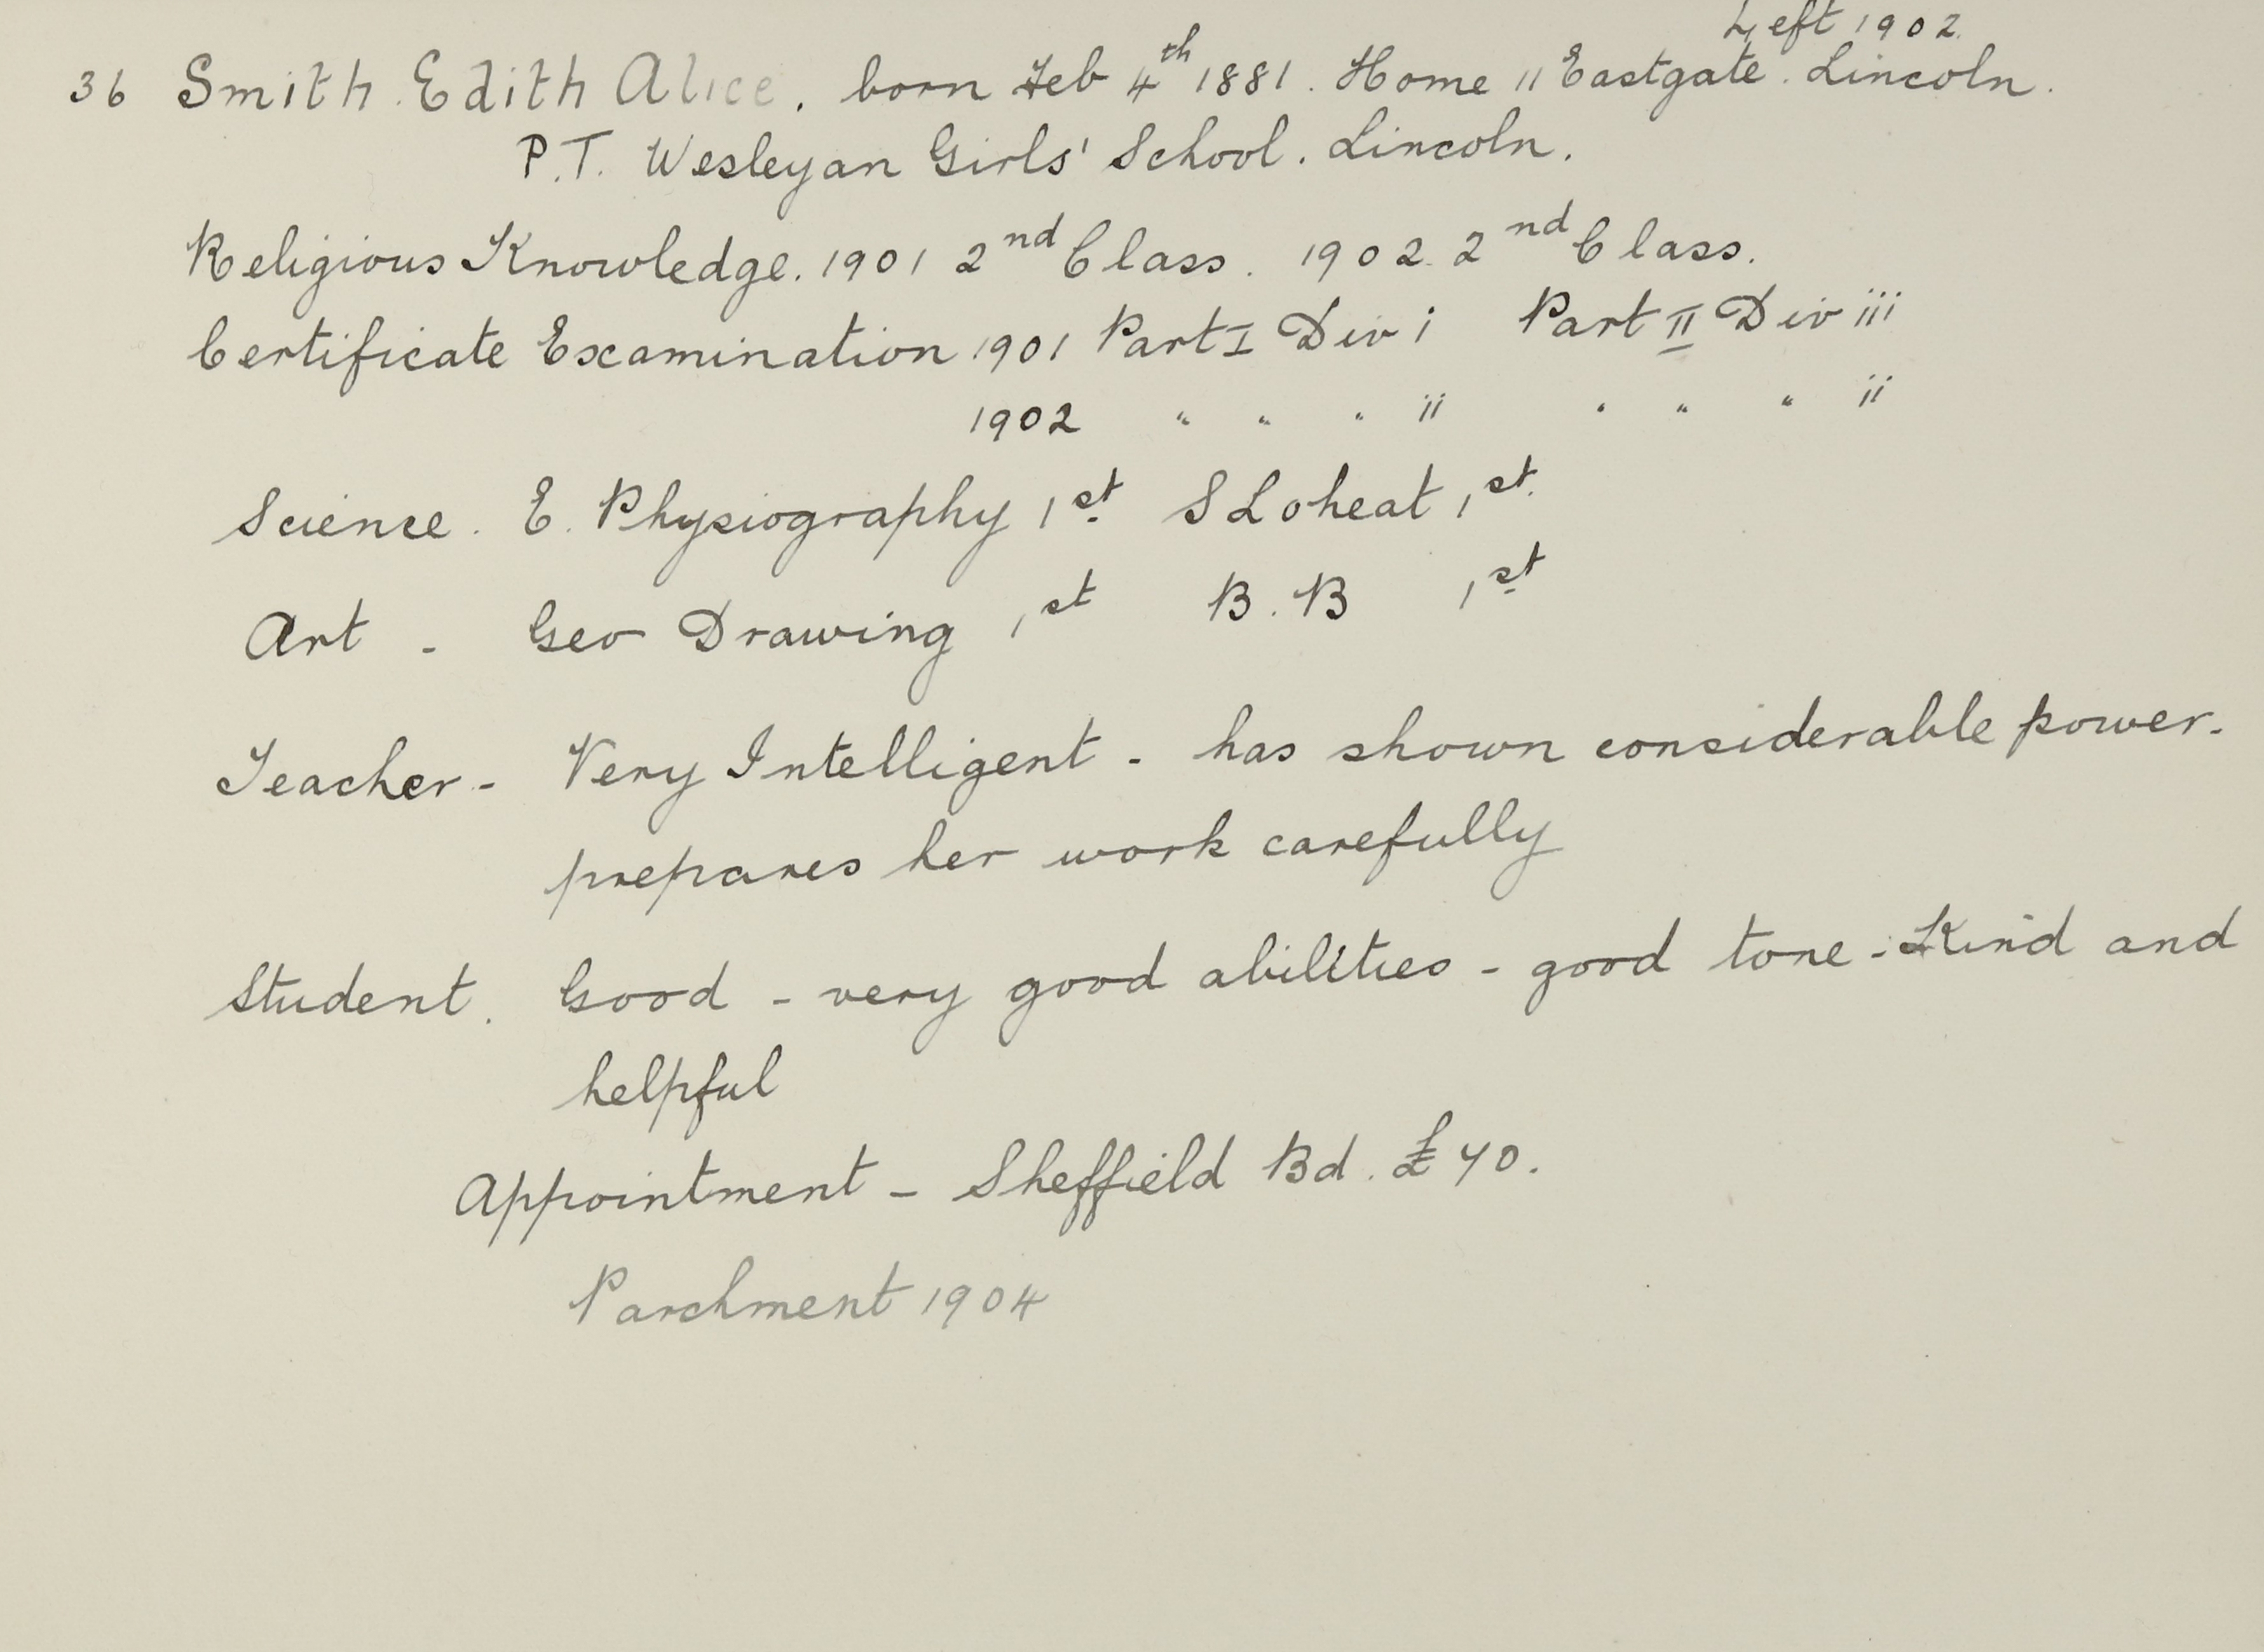 Left 1902.
36 Smith. Edith Alice. born Feb 4th 1881. Home 11 Eastgate. Lincoln.
P.T. Wesleyan Girls' School. Lincoln.
Religious Knowledge. 1901 2nd Class. 1902. 2nd Class.
Certificate Examination 1901 Part I Div i Part II Div iii
1902 " " " ii " " " ii
Science. E. Physiography 1st S L o heat 1st.
Art - Geo Drawing 1st B.B 1st
Teacher - Very Intelligent - has shown considerable power.
prepares her work carefully
Student. Good - very good abilities - good tone - Kind and
helpful
Appointment - Sheffield Bd. £70.
Parchment 1904